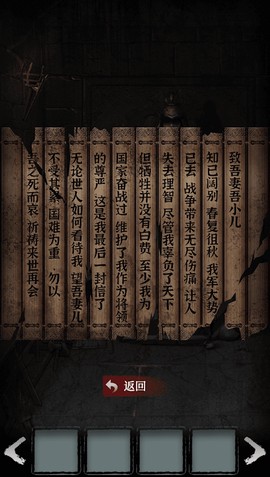 致吾妻吾小儿
知己阔别 春夏徂秋 我军大势
已去 战争带来无尽伤痛 让人
失去理智 尽管我辜负了天下
但牺牲并没有白费 至少我为
国家奋战过 维护了我作为将领
的尊严 这是我最后一封信了
无论世人如何看待我 望吾妻儿
不受其累 国难为重 勿以
吾之死而哀 祈祷来世再会
返回